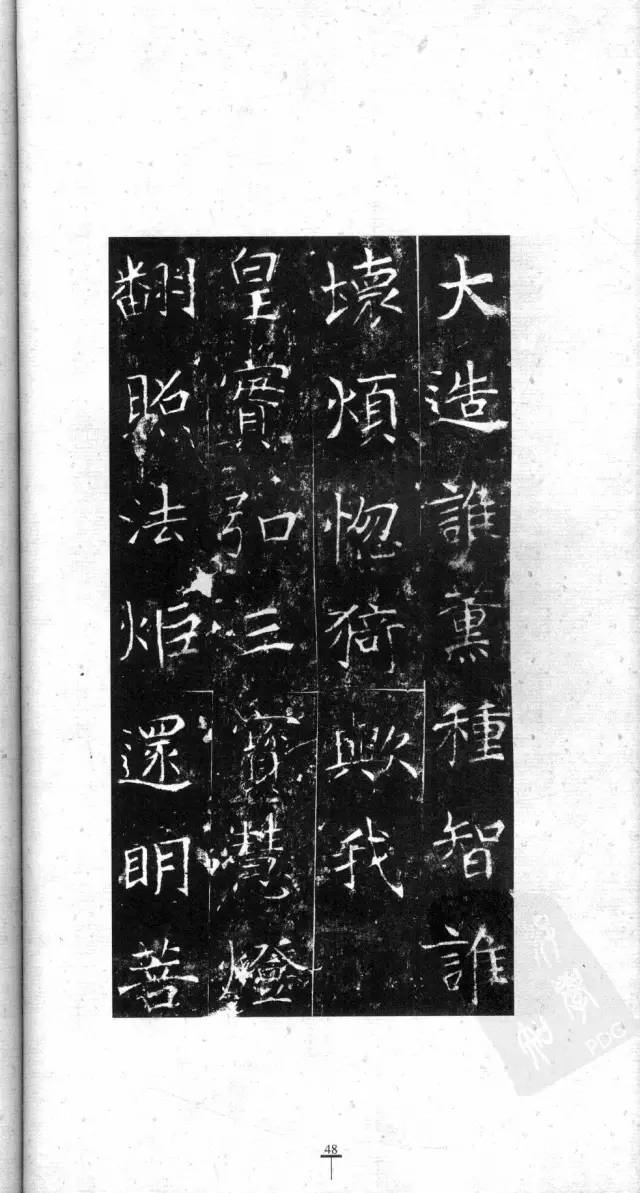 大造誰薰種智誰
壞煩惱猗歟我
皇實弘三寶慧燈
翻照法炬還眀菩
PDG
48